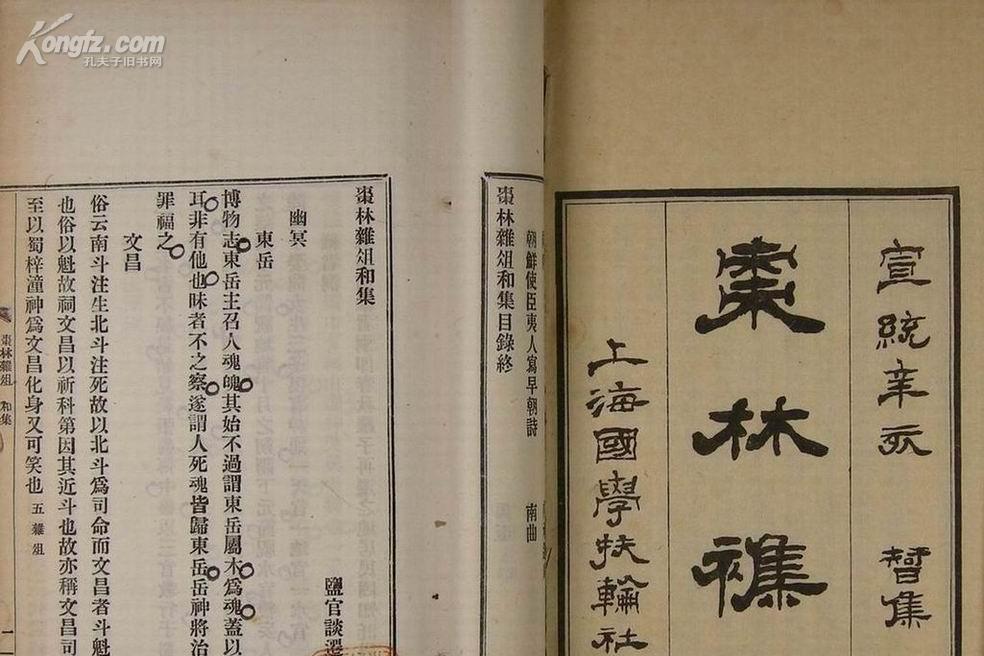 Kongfz.com
孔夫子旧书网
宣統辛亥 智集
棗林襍
上海國學扶輪社
朝鮮使臣夷人寫早朝詩 南曲
棗林雜俎和集目錄終
棗林雜俎和集
鹽官談遷
幽冥
東岳
博物志東岳主召人魂魄其始不過謂東岳屬木爲魂蓋以
耳非有他也昧者不之察遂謂人死魂皆歸東岳岳神將治
罪福之
文昌
俗云南斗注生北斗注死故以北斗爲司命而文昌者斗魁
也俗以魁故祠文昌以祈科第因其近斗也故亦稱文昌司
至以蜀梓潼神爲文昌化身又可笑也 五雜俎
棗林雜俎 和集 一